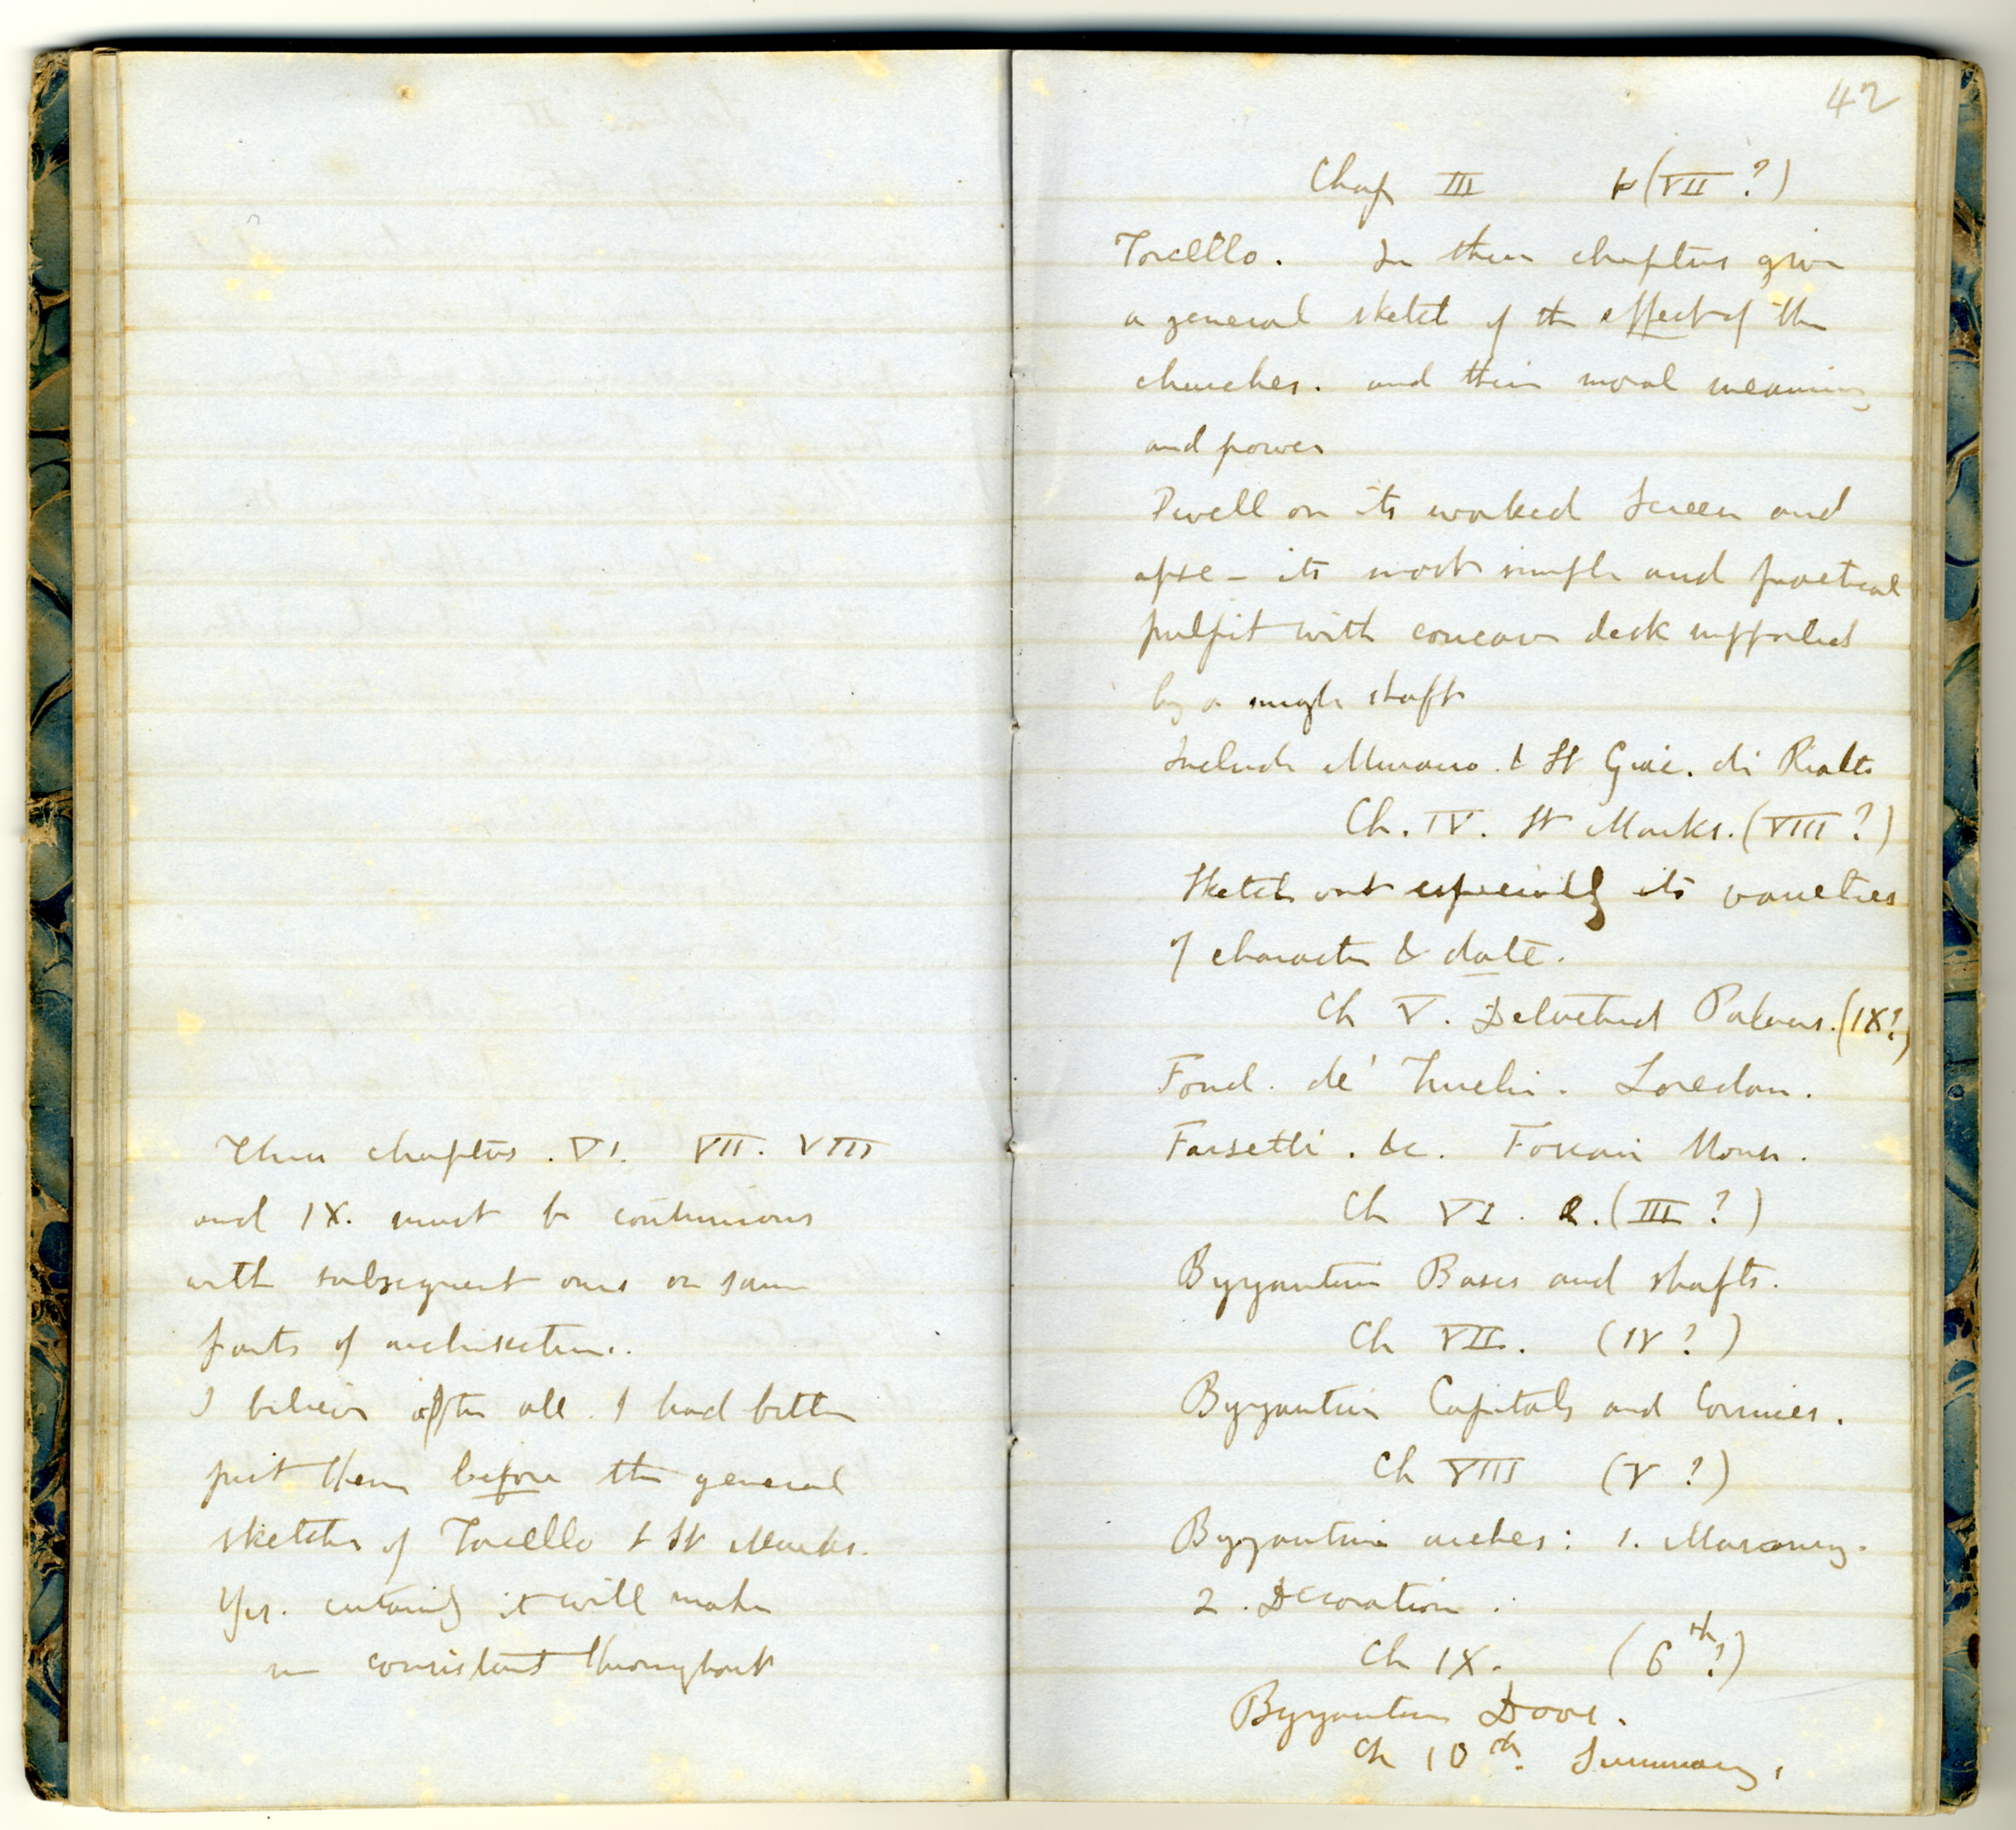 These chapters. VI. VII. VIII
and IX. must be continuous
with subsequent ones on same
parts of architecture.
I believe after all I had better
put them before the general
sketches of Torcello & St Marks.
Yes. certainly it will make
me consistent throughout
42
Chap III (VII ?)
Torcello. In these chapters give
a general sketch of the effect of the
churches. and their moral meaning
and power
Dwell on its worked Screen and
apse - its most simple and practical
pulpit with concave desk supported
by a single shaft
Include Murano. & St Giac. di Rialto
Ch. IV. St Marks. (VIII ?)
Sketch out especially its varieties
of character & date.
Ch V. Detached Palaces. (IX?)
Fond. de' Turchi. Loredan.
Farsetti. &c. Foscari House.
Ch VI. (III ?)
Byzantine Bases and shafts.
Ch VII. (IV ?)
Byzantine Capitals and Cornices.
Ch VIII (V ?)
Byzantine arches: 1. Masonry.
2. Decoration.
Ch IX. (6th?)
Byzantine Doors.
Ch 10th. Summary.